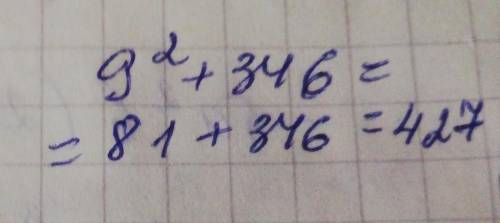 9² + 346 =
= 81 + 346 = 427